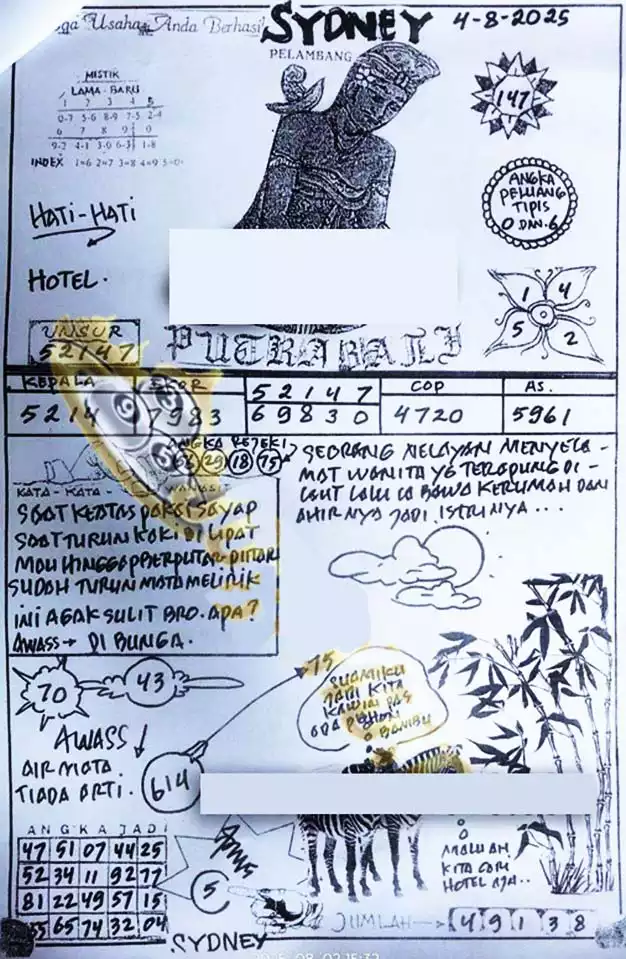 Usaha Anda Berhasil
SYDNEY
4-8-2025
PELAMBANG
MISTIK
LAMA - BARU
1 2 3 4 5
0-7 5-6 8-9 7-5 2-4
6 7 8 9 0
9-2 4-1 3-0 6-3 1-8
INDEX 1=6 2=7 3=8 4=9 5=0
147
ANGKA
PELUANG
TIPIS
0 DAN 6
HATI-HATI
HOTEL.
1 4
5 2
UNSUR
52147
PUTRA BALI
KEPALA
EKOR
52147
COP
AS.
5214
7983
69830
4720
5961
9
5
ANGKA REJEKI
29 18 75
KATA - KATA -
SEORANG NELAYAN MENYELA-
MAT WANITA YG TERAPUNG DI-
LAUT LALU IA BAWA KERUMAH DAN
AHIRNYA JADI ISTRINYA...
SAAT KEATAS PAKAI SAYAP
SAAT TURUN KAKI DI LIPAT
MAU HINGGAP BERPUTAR-PUTAR
SUDAH TURUN MATA MELIRIK
INI AGAK SULIT BRO. APA?
AWASS → DI BUNGA.
70
43
75
SUAMIKU
JADI KITA
KAWIN PAS
ADA POHON
BAMBU
AWASS
AIR MATA
TIADA ARTI.
614
ANGKA JADI
47 51 07 44 25
52 34 11 92 77
81 22 49 57 15
65 74 32 04
5
MALU AH
KITA CARI
HOTEL AJA..
JUMLAH → 4 9 1 3 8
.SYDNEY